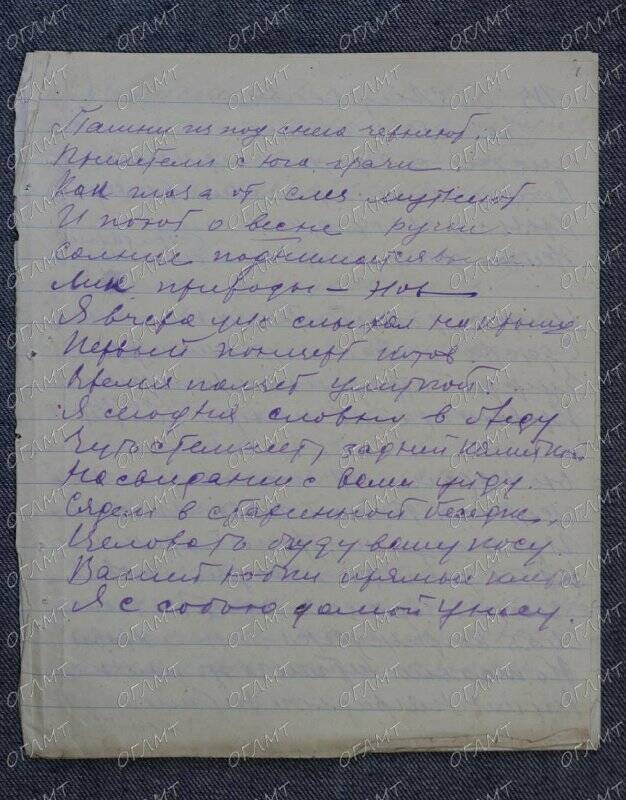 Пашни из под снега чернеют.
Прилетели с юга грачи.
Как глаза от слез мутнеют
И поют о весне ручьи
Солнце поднимается выше
Лик природы – нов
Я вчера уж слыхал на крыше
Первый концерт котов.
Время ползет улиткой.
Я сегодня словно в бреду
Чуть стемнеет, задней калиткой
На свидание с вами уйду.
Сядем в старинной беседке,
Целовать буду вашу косу.
Вашей юбки
Я с собою домой унесу.
ОГЛМТ